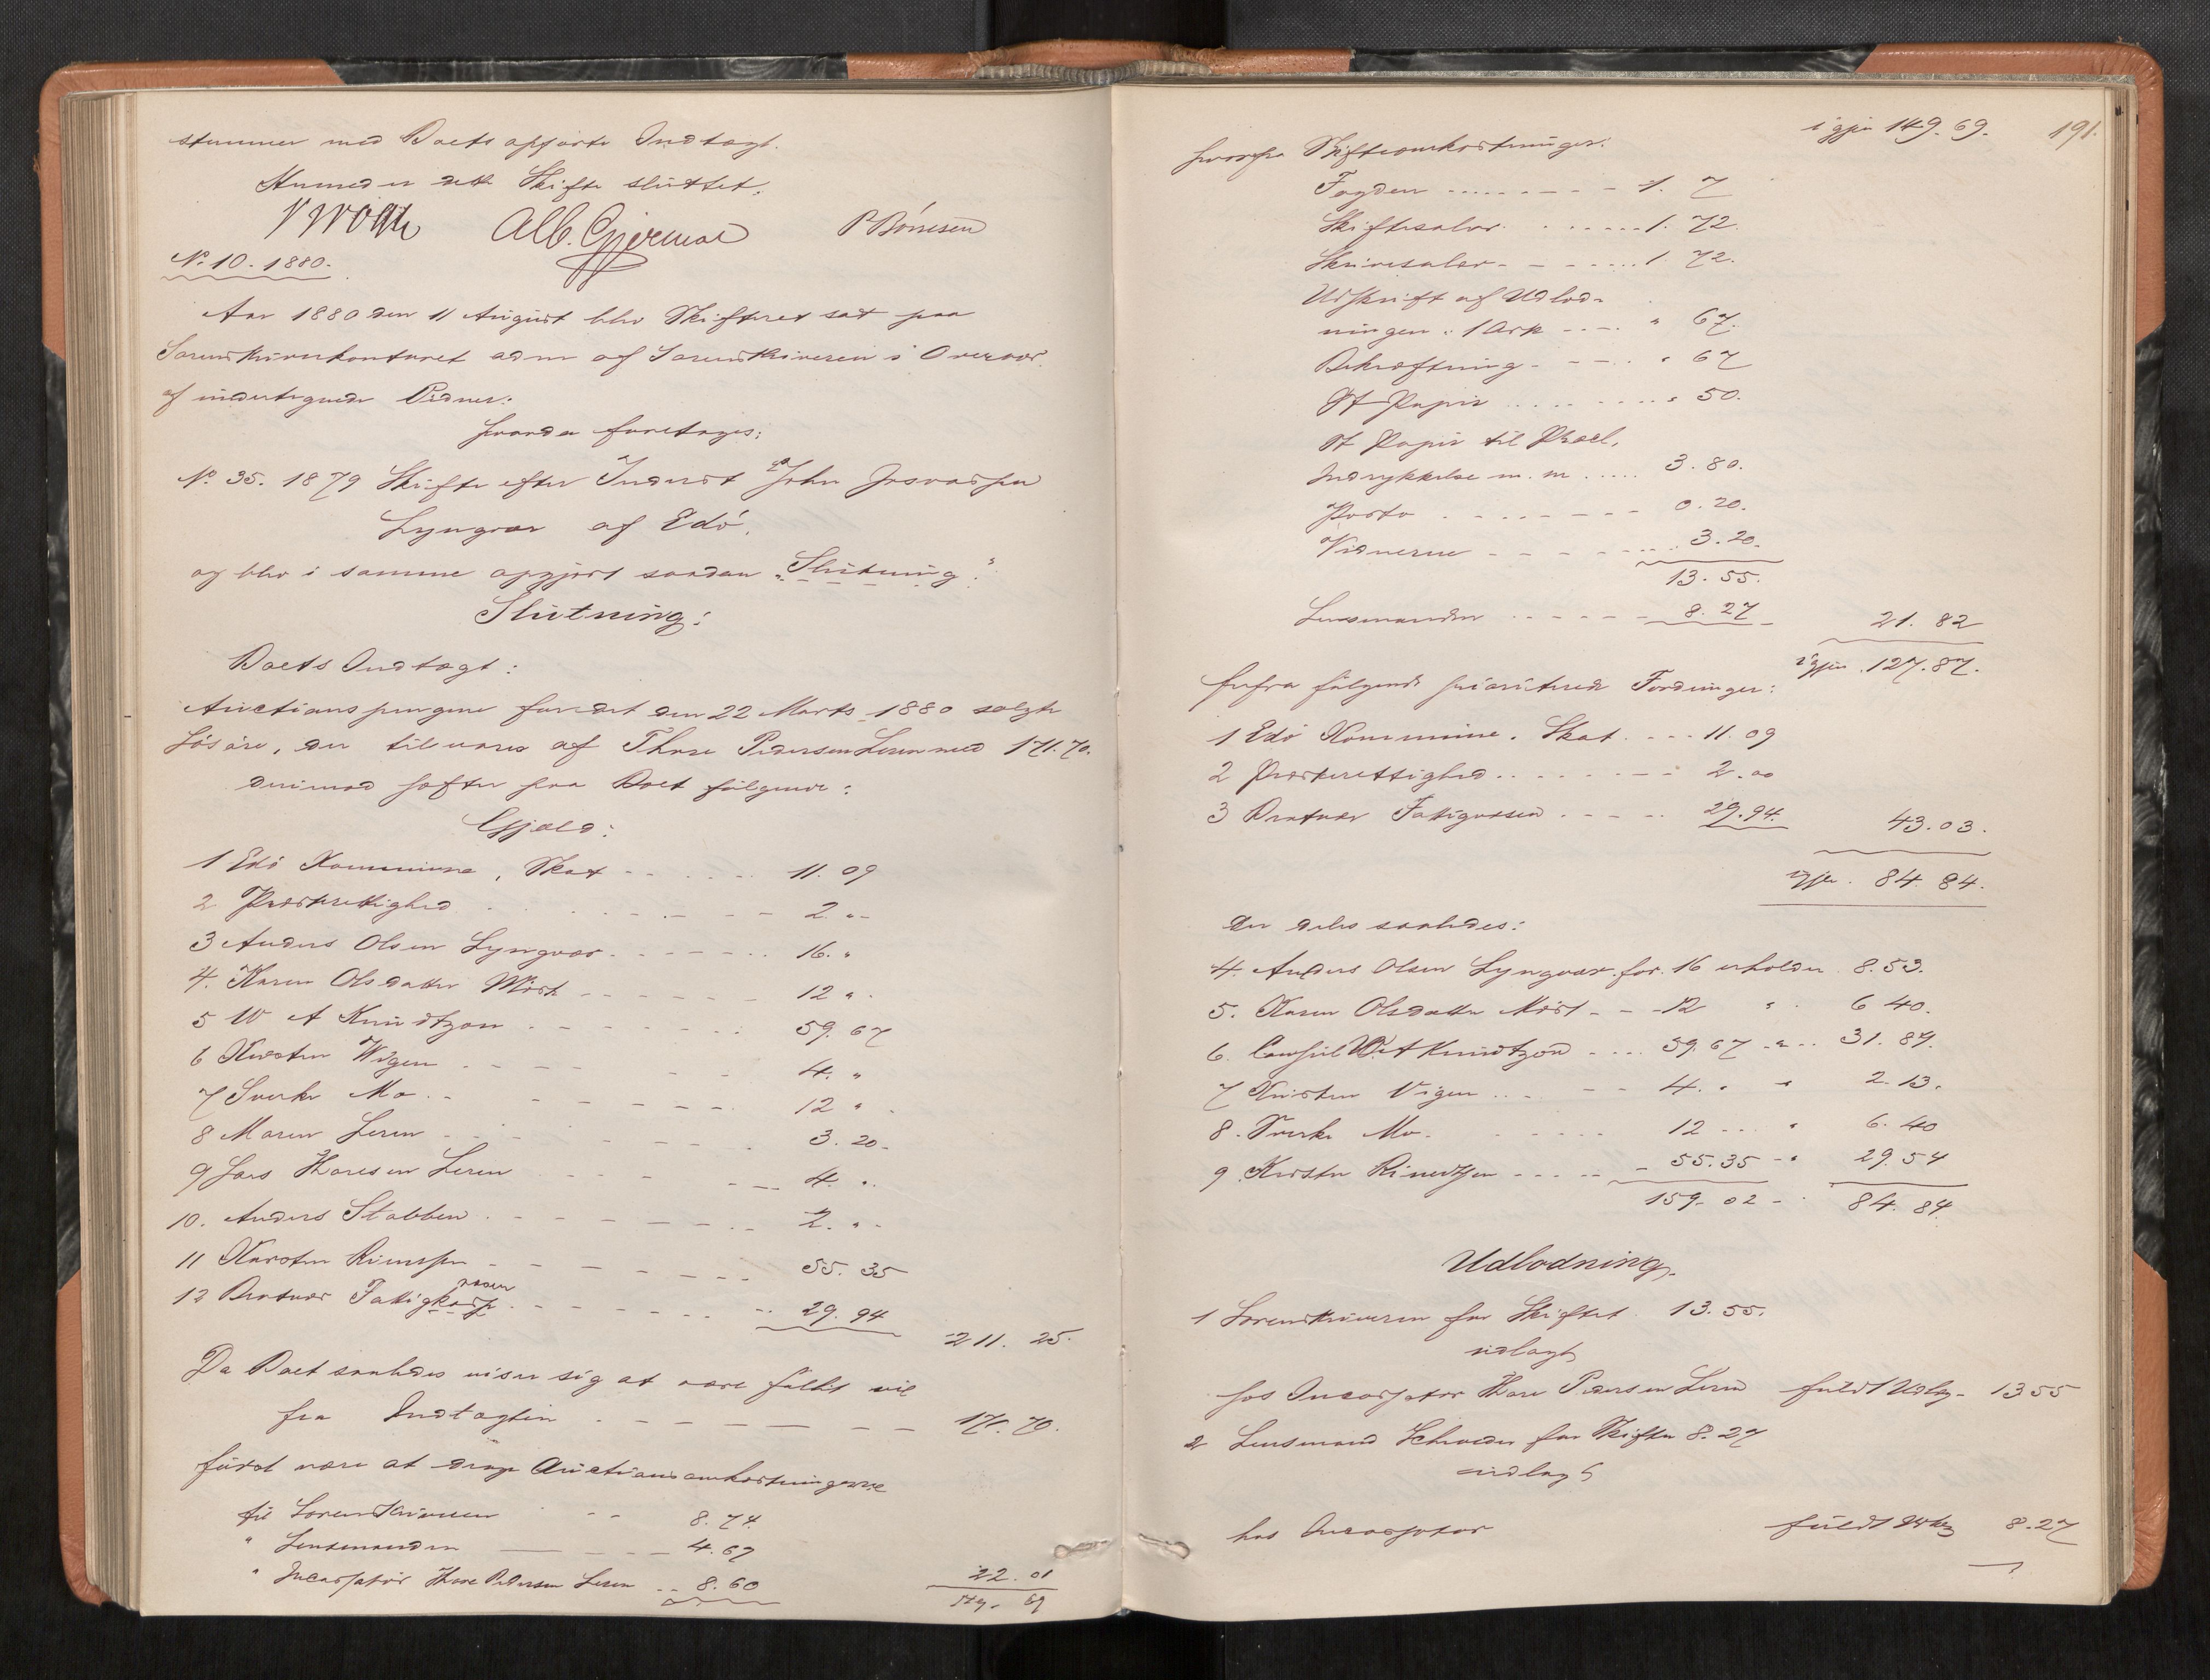 stemmer med Boets opførte Indtægt.
Hermed er dette Skifte sluttet.
Alb. Gjermoe P Børresen
No 10. 1880.
Aar 1880 den 11 August blev Skifteret sat paa
Sorenskriverkontoret adm af Sorenskriveren i Overvær
af undertegnede Vidner:
hvorda foretoges:
No 35. 1879 Skifte efter Inderst John Josvasen
Lyngvær af Edö.
og blev i samme opgjort saadan "Slutning:"
Slutning:
Boets Indtægt:
Auctionspengene for det den 22 Marts 1880 solgte
Lösöre, der tilsvares af Thore Pedersen Leren med 171.70.
derimod hefter paa Boet følgende:
Gjæld:
1 Edö Kommune, Skat 11. 09
2 Præsterettighed 2 "
3 Anders Olsen Lyngvær 16. "
4. Karen Olsdatter Mörk 12 "
5 W A Knudtzon 59. 67
6 Kirsten Wigen 4. "
7 Sverke Mo 12 "
8 Maren Leren 3. 20
9 Lars Thoresen Leren 4. "
10. Anders Stabben 2. "
11 Kirsten Rimesen 55. 35
12 Bratvær Fattigkasse væsen 29. 94
211. 25.
Da Boet saaledes viser sig at være fallit vil
fra Indtægten 171. 70.
først være at drage Auctionsomkostningerne
til Sorenskriveren 8. 74
" Lensmanden 4. 67
" Incassator Thore Pedersen Leren 8. 60
22. 01
149. 69
191.
igjen 149. 69.
hvorfra Skifteomkostninger:
Fogden 1. 7
Skiftesalær 1. 72.
Skrivesalær 1. 72.
Udskrift af Udlod-
ningen: 1 Ark " 67.
Bekræftning " 67
St Papir " 50.
St Papir til Procl.
Indrykkelse m. m 3. 80.
Porto 0. 20.
Vidnerne 3. 20.
13. 55.
Lensmanden 8. 27 21. 82
igjen 127. 87.
herfra følgende prioriterede Fordringer:
1 Edö Kommune. Skat 11. 09
2 Præsterettighed 2. 00
3 Bratvær Fattigvæsen 29. 94. 43. 03.
igjen. 84 84.
der deles saaledes:
4. Anders Olsen Lyngvær for 16 erholder 8. 53.
5. Karen Olsdatter Mörk 12 " 6 40.
6. Consul W A Knudtzon 59. 67 " 31. 84.
7 Kirsten Vigen 4. " " 2. 13.
8. Sverke Mo. 12 " 6. 40
9. Kirsten Rimesen 55. 35 " 29. 54
159. 02 84. 84.
Udlodning.
1 Sorenskriveren for Skiftet 13. 55.
udlagt
hos Incassator Thore Pedersen Leren fuldt Udlæg 13 55
2 Lensmand Schrøder for Skifte 8. 27
udlagt
hos Incassator fuldt Udlæg 8. 27